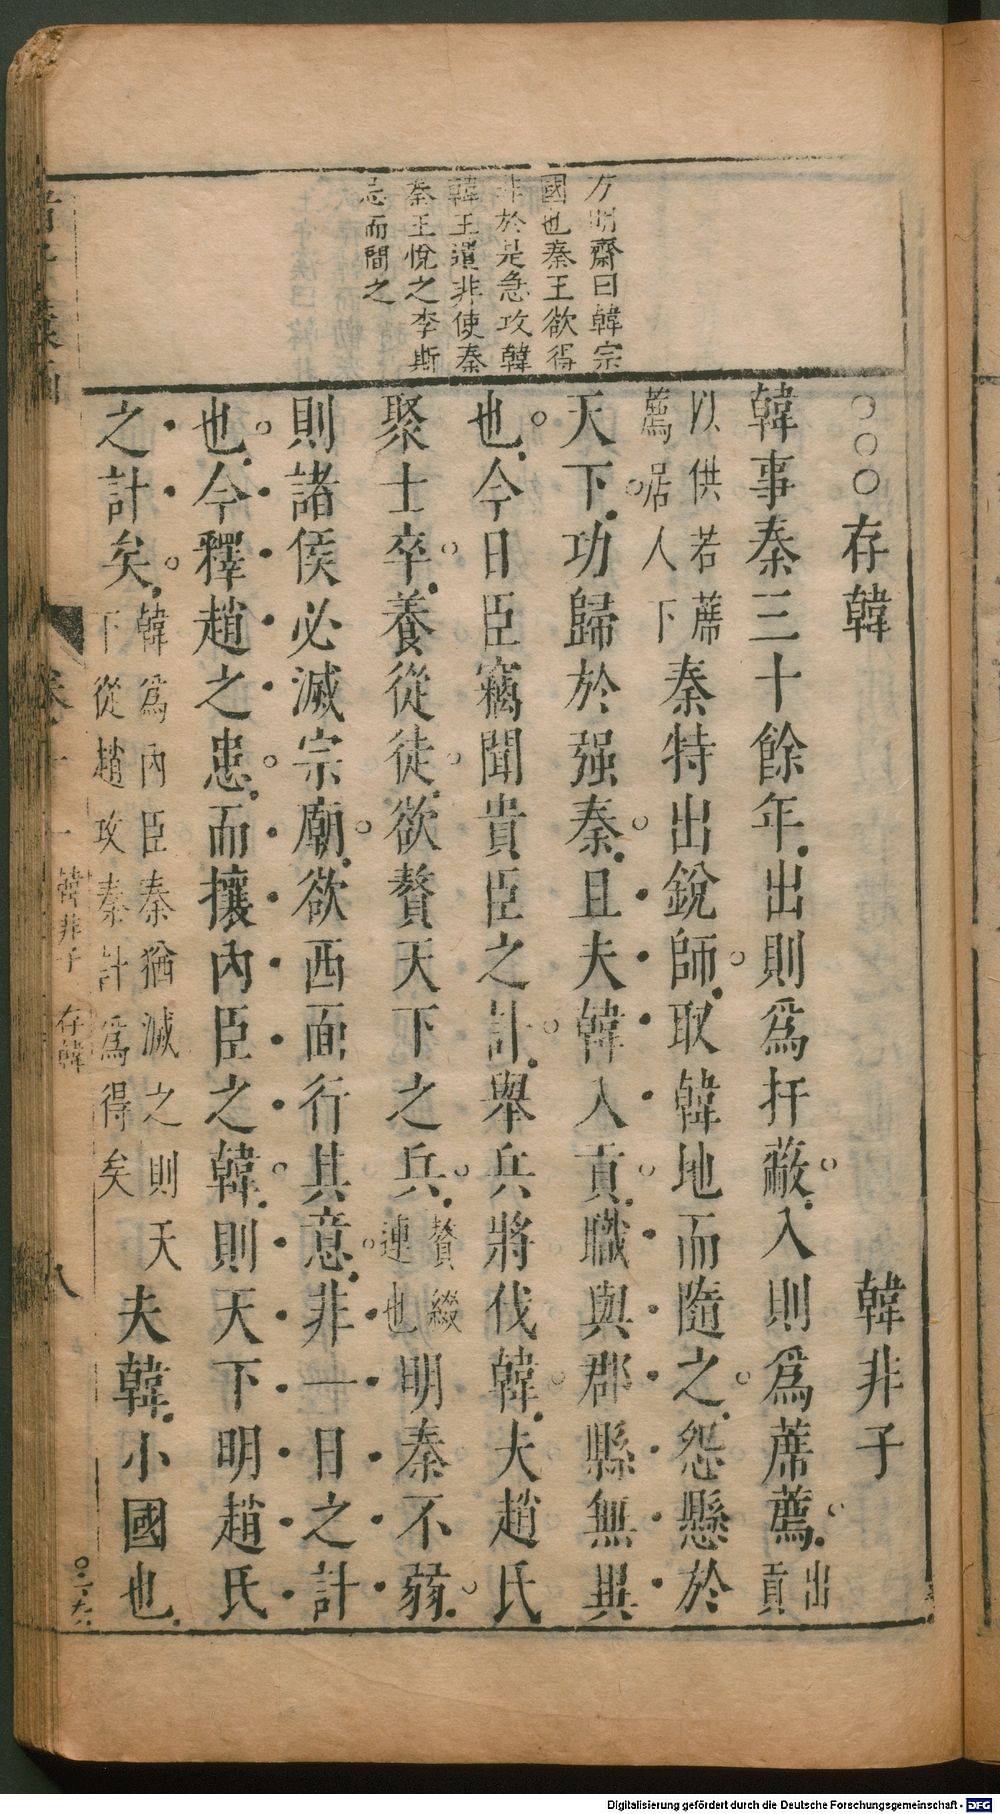 方明齋曰韓宗
國也秦王欲得
非於是急攻韓
韓王遣非使秦
秦王悅之李斯
忌而間之
○○○存韓 韓非子
韓事秦三十餘年出則爲扞蔽入則爲蓆薦出貢
以供若蓆薦居人下秦特出銳師取韓地而隨之怨懸於
天下功歸於强秦且夫韓入貢職與郡縣無異
也今日臣竊聞貴臣之計舉兵將伐韓夫趙氏
聚士卒養從徒欲贅天下之兵贅綴連也明秦不弱
則諸侯必滅宗廟欲西面行其意非一日之計
也今釋趙之患而攘內臣之韓則天下明趙氏
之計矣韓爲內臣秦猶滅之則天下從趙攻秦計爲得矣夫韓小國也
韓非子 存韓
八
Digitalisierung gefördert durch die Deutsche Forschungsgemeinschaft - DFG